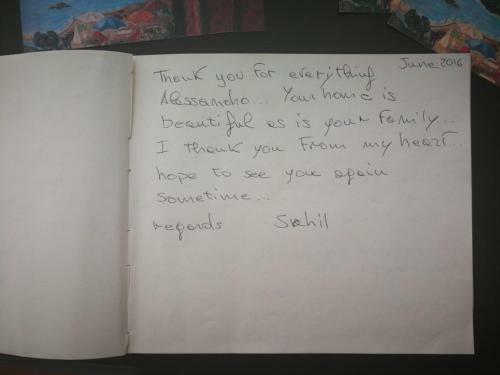 June 2016
Thank you For everything
Alessandro... Your home is
beautiful as is your Family...
I thank you From my heart...
hope to see you again
sometime...
regards Sahil